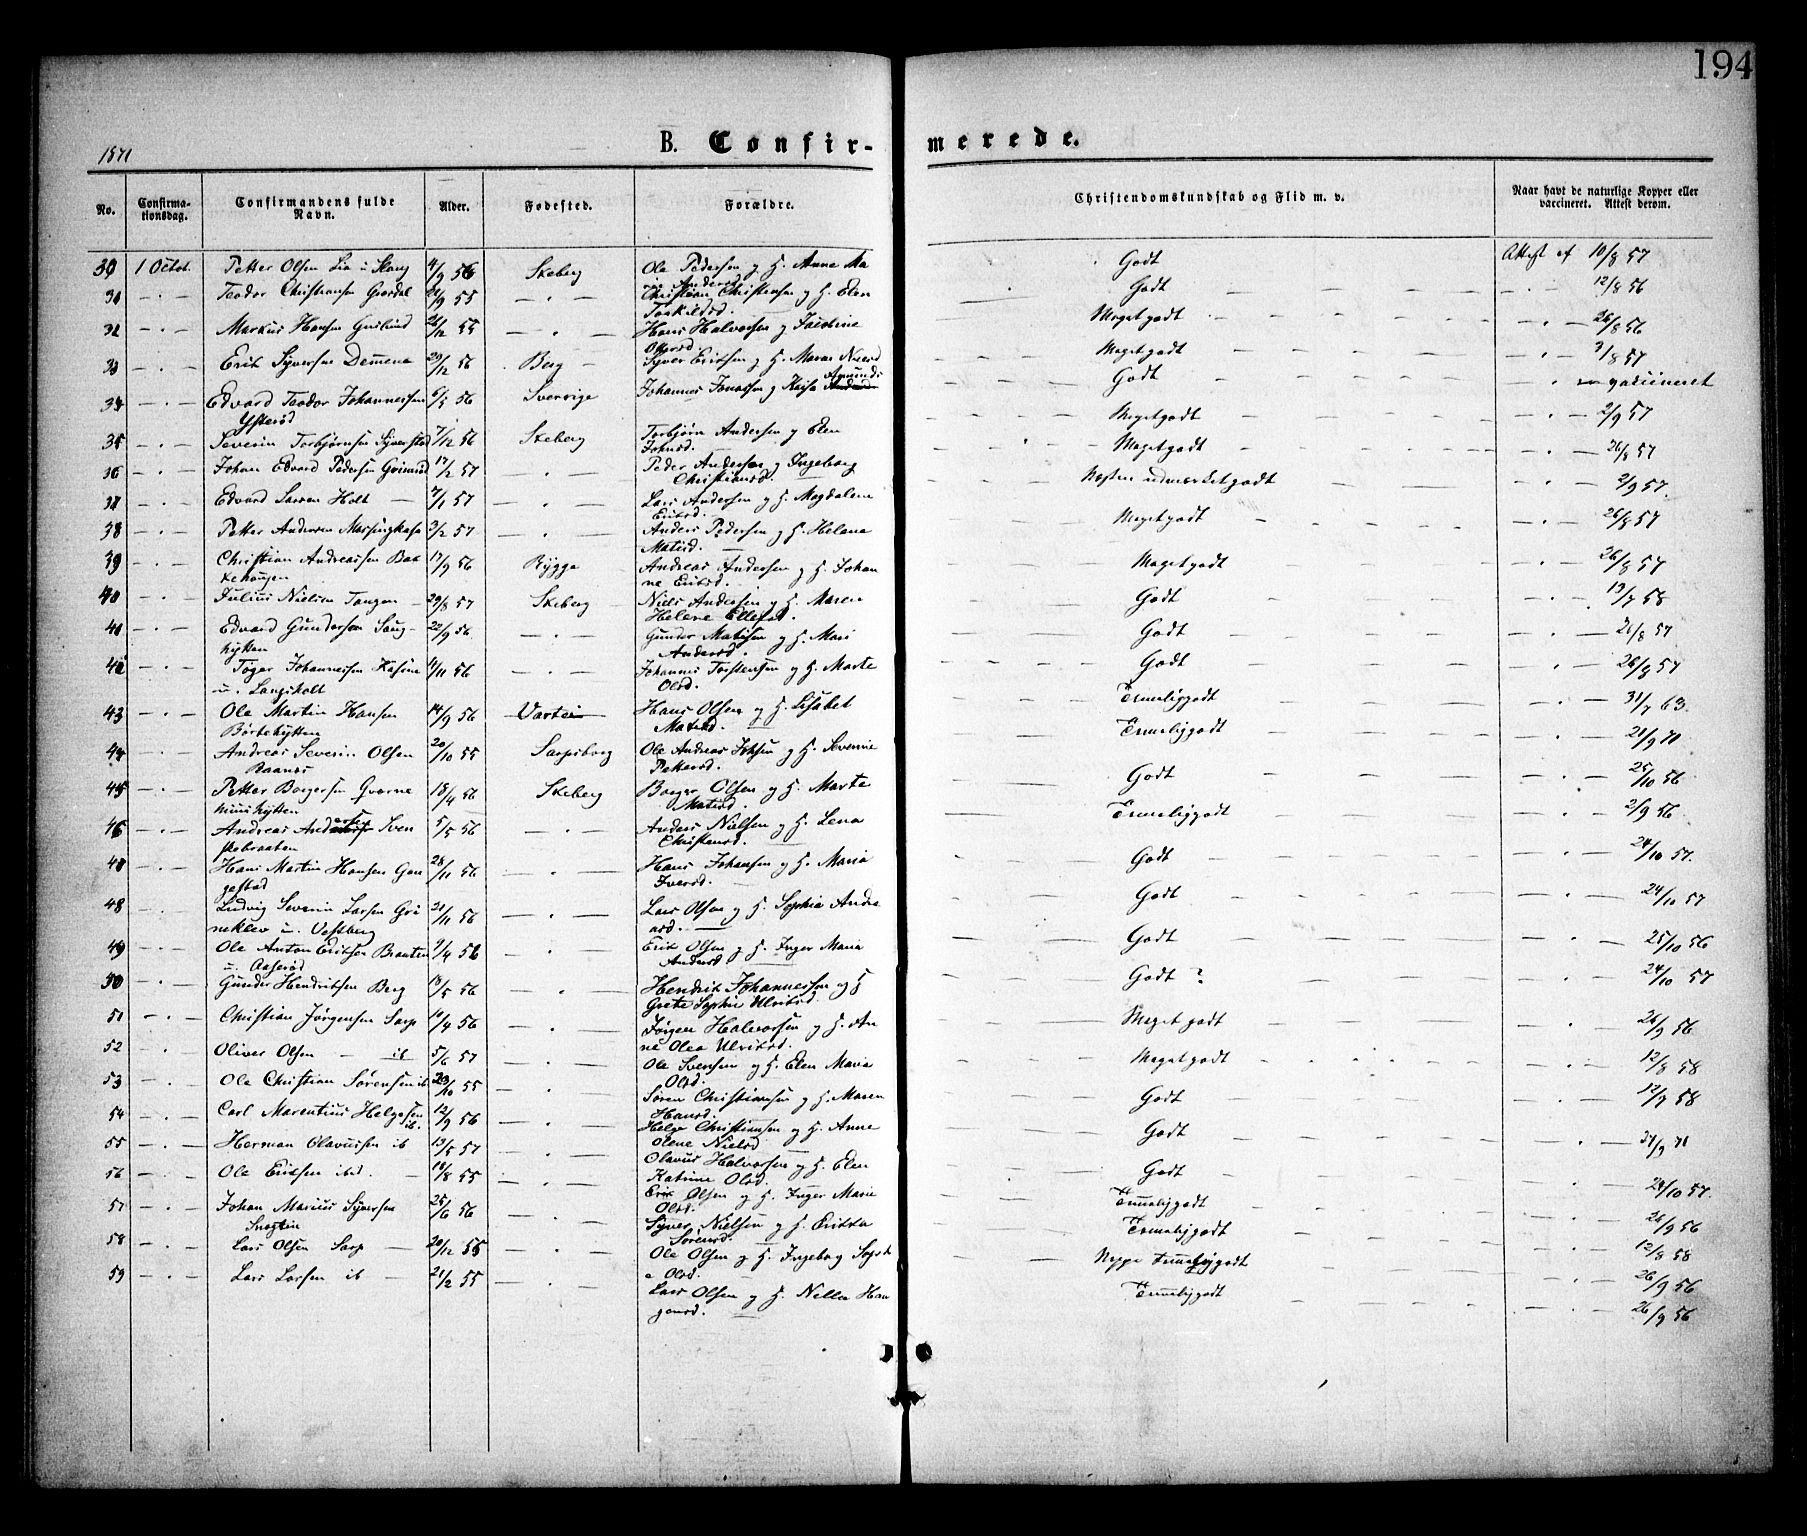 194
1871
B. Confir-
merede.
No.
Confirma-
tionsdag.
Confirmandens fulde
Navn.
Alder.
Fødested.
Forældre.
Christendomskundskab og Flid m. v.
Naar havt de naturlige Kopper eller
vaccineret. Attest derom.
30 1 Octob. Petter Olsen Lie u. Skoug 4/9 56 Skeberg Ole Pedersen og H. Anne Ma Godt Attest af 10/8 57
Andersd
31 — . — Teodor Christiansen Grødal 21/9 55 — . — Christian Christensen og H. Elen Godt — . — 12/8 56
Torkildsd.
32 — . — Markus Hansen Guslund 26/12 55 — . — Hans Halvorsen og Meget godt — . — 26/8 56
Olsd.
33 — . — Erik Syversen 29/12 56 Berg Syver Eriksen og H. Maren Meget godt — . — 3/8 57
34 — . — Edvard Teodor Johannessen 6/5 56 Sverrige Johannes Jonassen og Kaisa Godt vaccineret
Ysterød
35 — . — Severin Torbjørnsen Syverstad 7/12 56 Skeberg Torbjørn Andersen og Elen Meget godt 2/9 57
Johnsd.
36 — . — Johan Edvard Pedersen Grimsrød 17/2 57 — . — Peder Andersen og Ingeborg Meget godt — . — 26/8 57
Christiansd.
37 — . — Edvard Larsen Holt 7/1 57 — . — Lars Andersen og H. Magdalene Næsten udmærket godt — . — 2/9 57.
Eriksd.
38 — . — Petter Andersen 3/2 57 — . — Anders Pedersen og H. Helena Meget godt — . — 26/8 57
Matisd.
39 — . — Christian Andreassen Bak 17/9 56 Rygge Andreas Andersen og H. Johan Meget godt — . — 26/8 57
kehaugen
ne Eriksd.
40 — . — Julius Nielsen Tangen 29/8 57 Skeberg Niels Andersen og H. Maren Godt — . — 13/7 58
Helene Ellefsd.
41 — . — Edvard Gundersen Saug- 22/9 56 — . — Gunder Matisen og H. Mari Godt — . — 21/8 57
hytten
Andersd.
42 — . — Johannessen 11/11 56 — . — Johannes Torstensen og H. Marte Godt — . — 26/8 57
u. Langsholt
Olsd.
43 — . — Ole Martin Hansen 14/9 56 Varteig Hans Olsen og H. Lisabet Temmeligodt — . — 31/7 63.
Matisd.
44 — . — Andreas Severin Olsen 20/10 55 Sarpsborg Ole Andreas og H. Severine Temmeligodt — . — 21/9 71
Raanes
Pettersd.
45 — . — Petter Borgersen Qverne 18/4 56 Skeberg Borger Olsen og H. Marte Godt — . — 25/10 56
Matisd.
46 — . — Andreas Andersen Sven 5/5 56 — . — Anders Nielsen og H. Lena Temmeligodt — . — 2/9 56
skebraaten
Christensd.
47 — . — Hans Martin Hansen Gau 28/11 56 — . — Hans Johansen og H. Maria Godt — . — 24/10 57.
gestad
Iversd.
48 Ludvig Severin Larsen Gri 21/11 56 — . — Lars Olsen og H. Sophia Andre Godt — . — 24/10 57
neklev u. Vestberg
asd.
49 — . — Ole Anton Eriksen Braaten 9/4 56 — . — Erik Olsen og H. Inger Maria Godt — . — 25/10 56
u. Aaserød
Andersd
50 — . — Gunder Hendriksen Berg 13/5 56 — . — Hendrik Johannessen og H Godt ? — . — 24/10 57
Grete Sophie Ulriksd
51 — . — Christian Jørgensen Sarp 10/4 56 — . — Jørgen Halvorsen og H. An Meget godt — . — 26/9 56
ne Olea Ulriksd.
52 — . — Oliver Olsen — ib 5/6 57 — . — Ole Svensen og H. Elen Maria Meget godt — . — 12/8 58
Olsd.
53 — . — Ole Christian Sørensen ib 23/10 55 — . — Søren Christiansen og H. Maren Godt — . — 12/9 58
Hansd.
54 — . — Carl Marentius Helgesen 12/9 56 — . — Helge Christiansen og H. Anne Godt — . — 27/9 71
ib.
Olene Nielsd
55 — . — Herman Olavussen ib 13/5 57 — . — Olavus Halvorsen og H. Elen Godt — . — 24/10 57.
Katrine Olsd
56 — . — Ole Eriksen ibid. 18/8 55 — . — Erik Olsen og H. Inger Marie Temmeligodt — . — 26/9 56
Olsd.
57 — . — Johan Marius Syversen 25/6 56 — . — Syver Nielsen og H. Erikka Temmeligodt — . — 12/8 58
Sørensd.
58 — . — Lars Olsen Sarp 20/12 55 — . — Ole Olsen og H. Ingeborg Neppe Temmeligodt — . — 26/9 56
Olsd.
59 — . — Lars Larsen ib 21/2 55 — . — Lars Olsen og H. Nella Hau Temmeligodt 26/9 56
gansd.